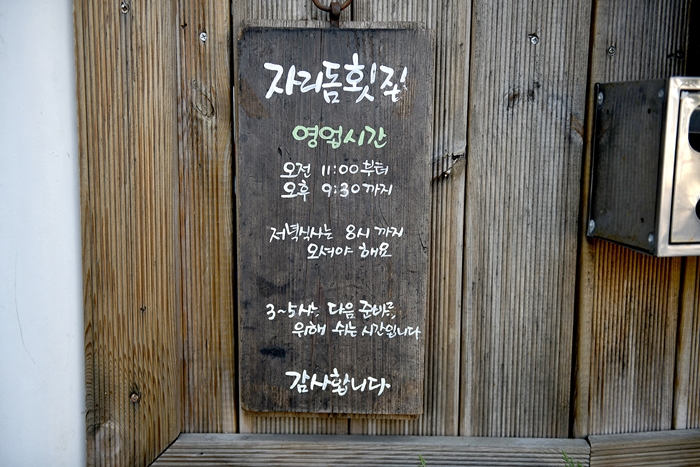 자리돔횟집
영업시간
오전 11:00부터
오후 9:30까지
저녁식사는 8시까지
오셔야 해요
3~5시는, 다음 준비를,
위해 쉬는 시간입니다
감사합니다.